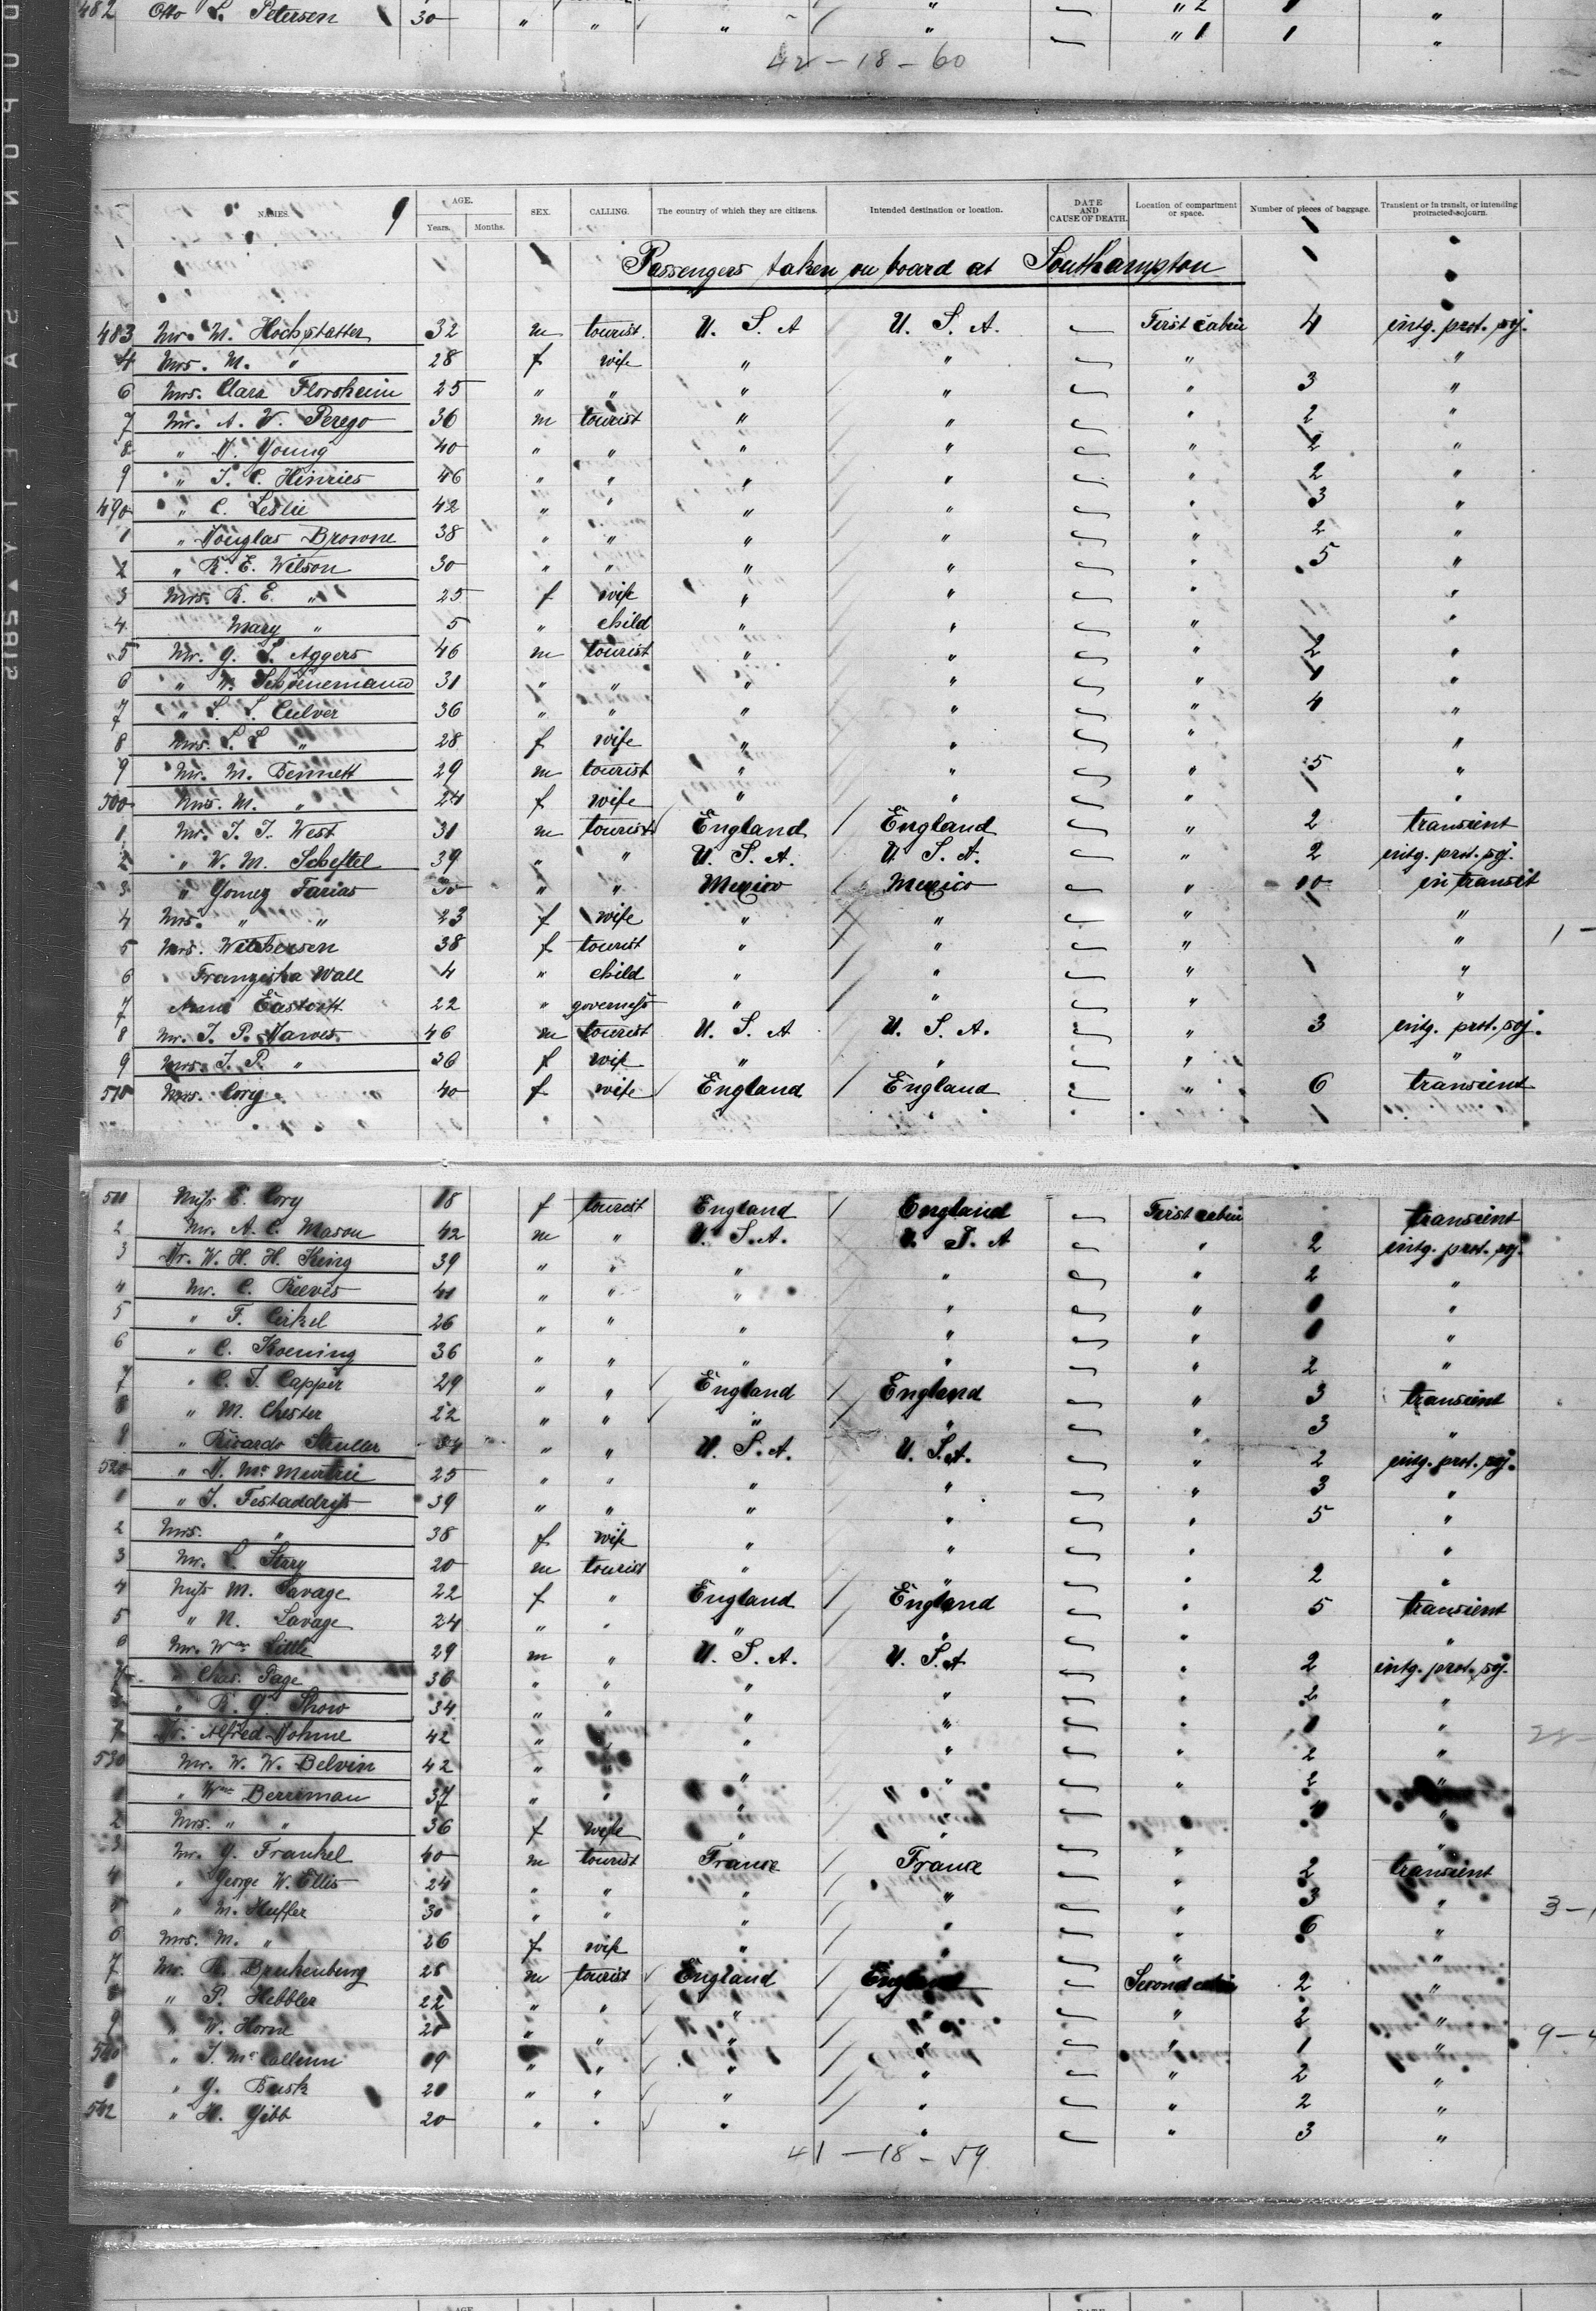 482 Otto L. Petersen 30 " " " " " 2 1 "
" " " 1 1 "
42 - 18 - 60
NAMES. 9 AGE. Years. Months. SEX. CALLING. The country of which they are citizens. Intended destination or location. DATE AND CAUSE OF DEATH. Location of compartment or space. Number of pieces of baggage. Transient or in transit, or intending protracted sojourn.
Passengers taken on board at Southampton
483 Mr. M. Hochstatter 32 m tourist U. S. A U. S. A. First cabin 4 intg. prot. soj.
4 Mrs. M. " 28 f wife " " " "
6 Mrs. Clara Florsheim 25 " " " " " 3 "
7 Mr. A. V. Perego 36 m tourist " " " 2 "
8 " N. Young 40 " " " " " 2 "
9 " J. C. Hinries 46 " " " " " 2 "
490 " C. Leslie 42 " " " " " 3 "
1 " Douglas Browne 38 " " " " " 2 "
2 " R. E. Wilson 30 " " " " " 5 "
3 Mrs. R. E. " 25 f wife " " " "
4 Mary " 5 " child " " " "
5 Mr. G. L. Aggers 46 m tourist " " " 2 "
6 " W. Schönemann 31 " " " " " 1 "
7 " L. L. Culver 36 " " " " " 4 "
8 Mrs. L. L " 28 f wife " " " "
9 Mr. M. Bennett 29 m tourist " " " 5 "
500 Mrs. M. " 24 f wife " " " "
1 Mr. J. J. West 31 m tourist England England " 2 transient
2 " W. M. Scheftel 39 " " U. S. A. U. S. A. " 2 intg. prot. soj.
3 " Gomez Farias 30 " " Mexico Mexico " 10 in transit
4 Mrs. " " 23 f wife " " " "
5 Mrs. 38 f tourist " " " " 1 -
6 Franziska Wall 4 " child " " " "
7 22 " governess " " " "
8 Mr. J. P. Dawes 46 m tourist U. S. A U. S. A. " 3 intg. prot. soj.
9 Mrs. J. P. " 36 f wife " " " "
510 Mrs. Cory 40 f wife England England " 6 transient
511 Miss E. Cory 18 f tourist England England First cabin transient
2 Mr. A. C. Mason 42 m " U. S. A. U. S. A " 2 intg. prot. soj.
3 Dr. W. H. H. King 39 " " " " " 2 "
4 Mr. C. Reeves 41 " " " " " 1 "
5 " F. Cirkel 26 " " " " " 1 "
6 " C. Koening 36 " " " " " 2 "
7 " C. J. Capper 29 " " England England " 3 transient
8 " M. Chester 22 " " " " " 3 "
9 " Ricardo 34 " " U. S. A. U. S. A. " 2 intg. prot. soj.
520 " D. McMurtrie 25 " " " " " 3 "
1 " J. 39 " " " " " 5 "
2 Mrs. " 38 f wife " " " "
3 Mr. L. Stary 20 m tourist " " " 2 "
4 Miss M. Savage 22 f " England England " 5 transient
5 " N. Savage 24 " " " " " "
6 Mr. Wm Little 29 m " U. S. A. U. S. A " 2 intg. prot. soj.
7 " Chas. Page 36 " " " " " 2 "
8 " R. G. Show 34 " " " " " 1 "
9 Dr. Alfred Dohme 42 " " " " " 2 "
530 Mr. W. W. Belvin 42 " " " " " 2 "
1 " Wm Berriman 37 " " " " 1 "
2 Mrs. " " 36 f wife " " " "
3 Mr. G. Frankel 40 m tourist France France " 2 transient
4 " George W. Ellis 24 " " " " " 3 "
5 " M. Huffer 30 " " " " " 6 " 3 - 1
6 Mrs. M. " 26 f wife " " " "
7 Mr. R. Brukenburg 28 m tourist England England Second cabin 2 "
8 " P. Hebbler 22 " " " " " 2 "
9 " W. Horne 20 " " " " " 1 " 9 - 4
540 " J. McCallum 19 " " " " " 2 "
1 " G. Busk 20 " " " " " 2 "
542 " H. Gibb 20 " " " " " 3 "
41 - 18 - 59
AGE. DATE